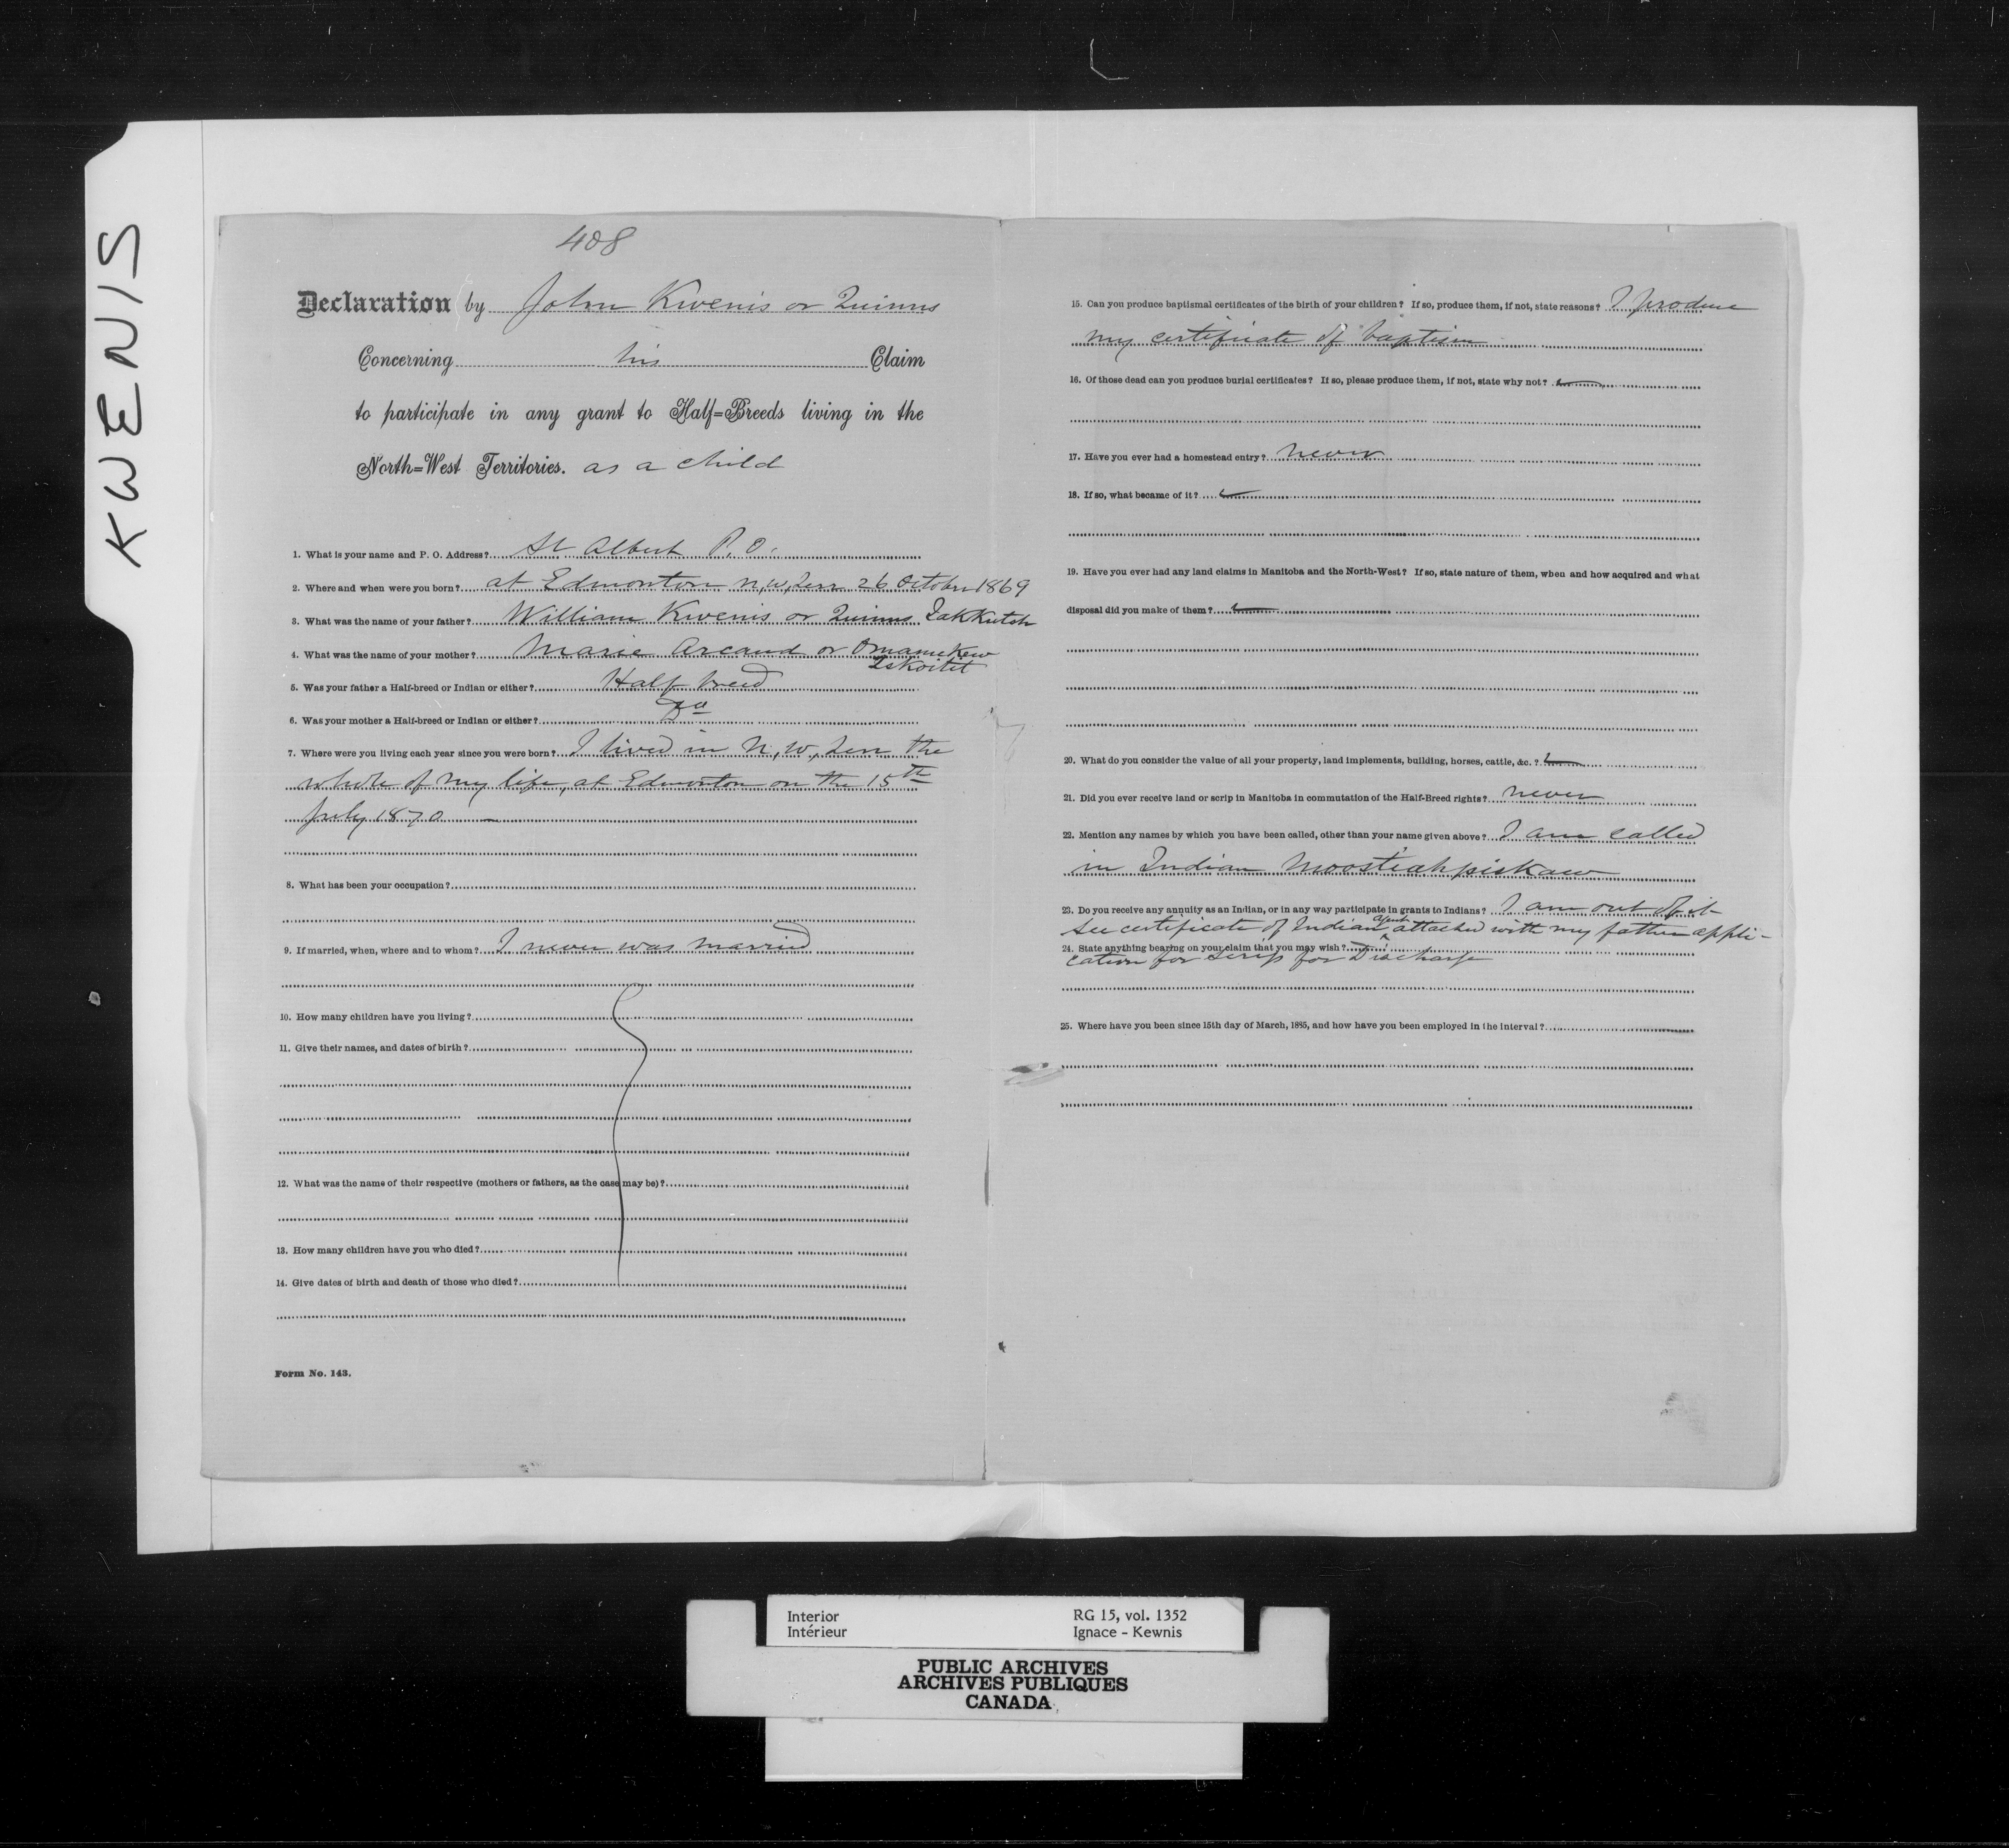 KWENIS
408
Declaration by John Kwenis or Quinns
Concerning his Claim
to participate in any grant to Half=Breeds living in the
North=West Territories. as a child
1. What is your name and P. O. Address? St Albert P. O.
2. Where and when were you born? at Edmonton N, W, Terr 26 October 1869
3. What was the name of your father? William Kwenis or Quinns
4. What was the name of your mother? Marie Arcand or
5. Was your father a Half-breed or Indian or either? Half breed
6. Was your mother a Half-breed or Indian or either? Do
7. Where were you living each year since you were born? I lived in N, W, Terr the
whole of my life, at Edmonton on the 15th
July 1870 —
8. What has been your occupation?
9. If married, when, where and to whom? I never was married
10. How many children have you living?
11. Give their names, and dates of birth?
12. What was the name of their respective (mothers or fathers, as the case may be)?
13. How many children have you who died?
14. Give dates of birth and death of those who died?
Form No. 143.
15. Can you produce baptismal certificates of the birth of your children? If so, produce them, if not, state reasons? I produce
my certificate of baptism
16. Of those dead can you produce burial certificates? If so, please produce them, if not, state why not?
17. Have you ever had a homestead entry? never
18. If so, what became of it?
19. Have you ever had any land claims in Manitoba and the North-West? If so, state nature of them, when and how acquired and what
disposal did you make of them?
20. What do you consider the value of all your property, land implements, building, horses, cattle, &c. ?
21. Did you ever receive land or scrip in Manitoba in commutation of the Half-Breed rights? never
22. Mention any names by which you have been called, other than your name given above? I am called
in Indian Moostiahpiskaw
23. Do you receive any annuity as an Indian, or in any way participate in grants to Indians? I am out of it
see certificate of Indian agent attached with my father appli-
24. State anything bearing on your claim that you may wish?
cation for scrip for Discharge
25. Where have you been since 15th day of March, 1885, and how have you been employed in the interval?
Interior
Intérieur
RG 15, vol. 1352
Ignace - Kewnis
PUBLIC ARCHIVES
ARCHIVES PUBLIQUES
CANADA